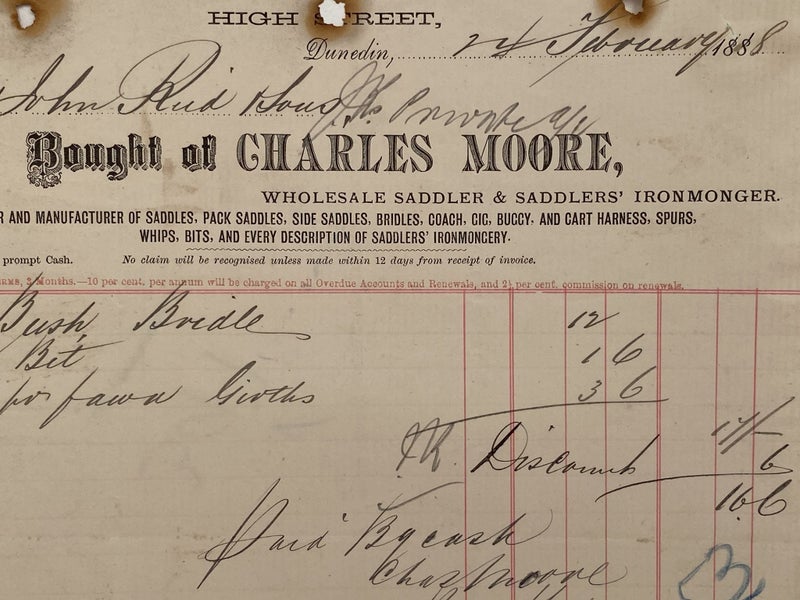 HIGH STREET,
Dunedin, 24 February 1888
John Reid & Sons J.R's Private a/c
Bought of CHARLES MOORE,
WHOLESALE SADDLER & SADDLERS' IRONMONGER.
R AND MANUFACTURER OF SADDLES, PACK SADDLES, SIDE SADDLES, BRIDLES, COACH, GIG, BUGGY, AND CART HARNESS, SPURS,
WHIPS, BITS, AND EVERY DESCRIPTION OF SADDLERS' IRONMONGERY.
prompt Cash. No claim will be recognised unless made within 12 days from receipt of invoice.
ERMS, 3 Months.—10 per cent. per annum will be charged on all Overdue Accounts and Renewals, and 2½ per cent. commission on renewals.
Bush Bridle 12
Bit 1 6
pr fawn Girths 3 6
17/-
JR. Discount 6
16.6
Paid By cash
Chas Moore